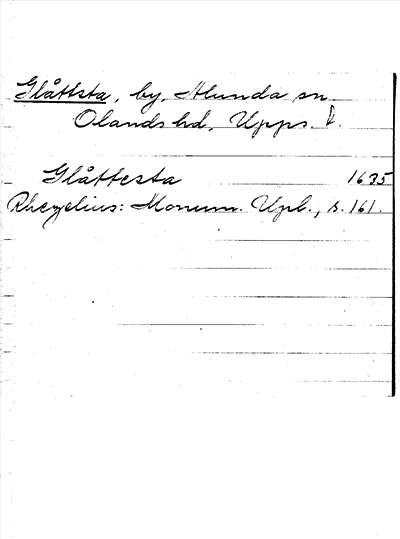 Glåttsta, by, Alunda sn
Olands hd, Upps. l.
Glåttesta 1635
Rhezelius: Monum. Upl., s. 161.